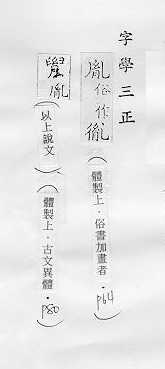 字學三正
胤俗作𦙍(體製上·俗書加畫者·p64
胤(以上說文)(體製上·古文異體·p80)